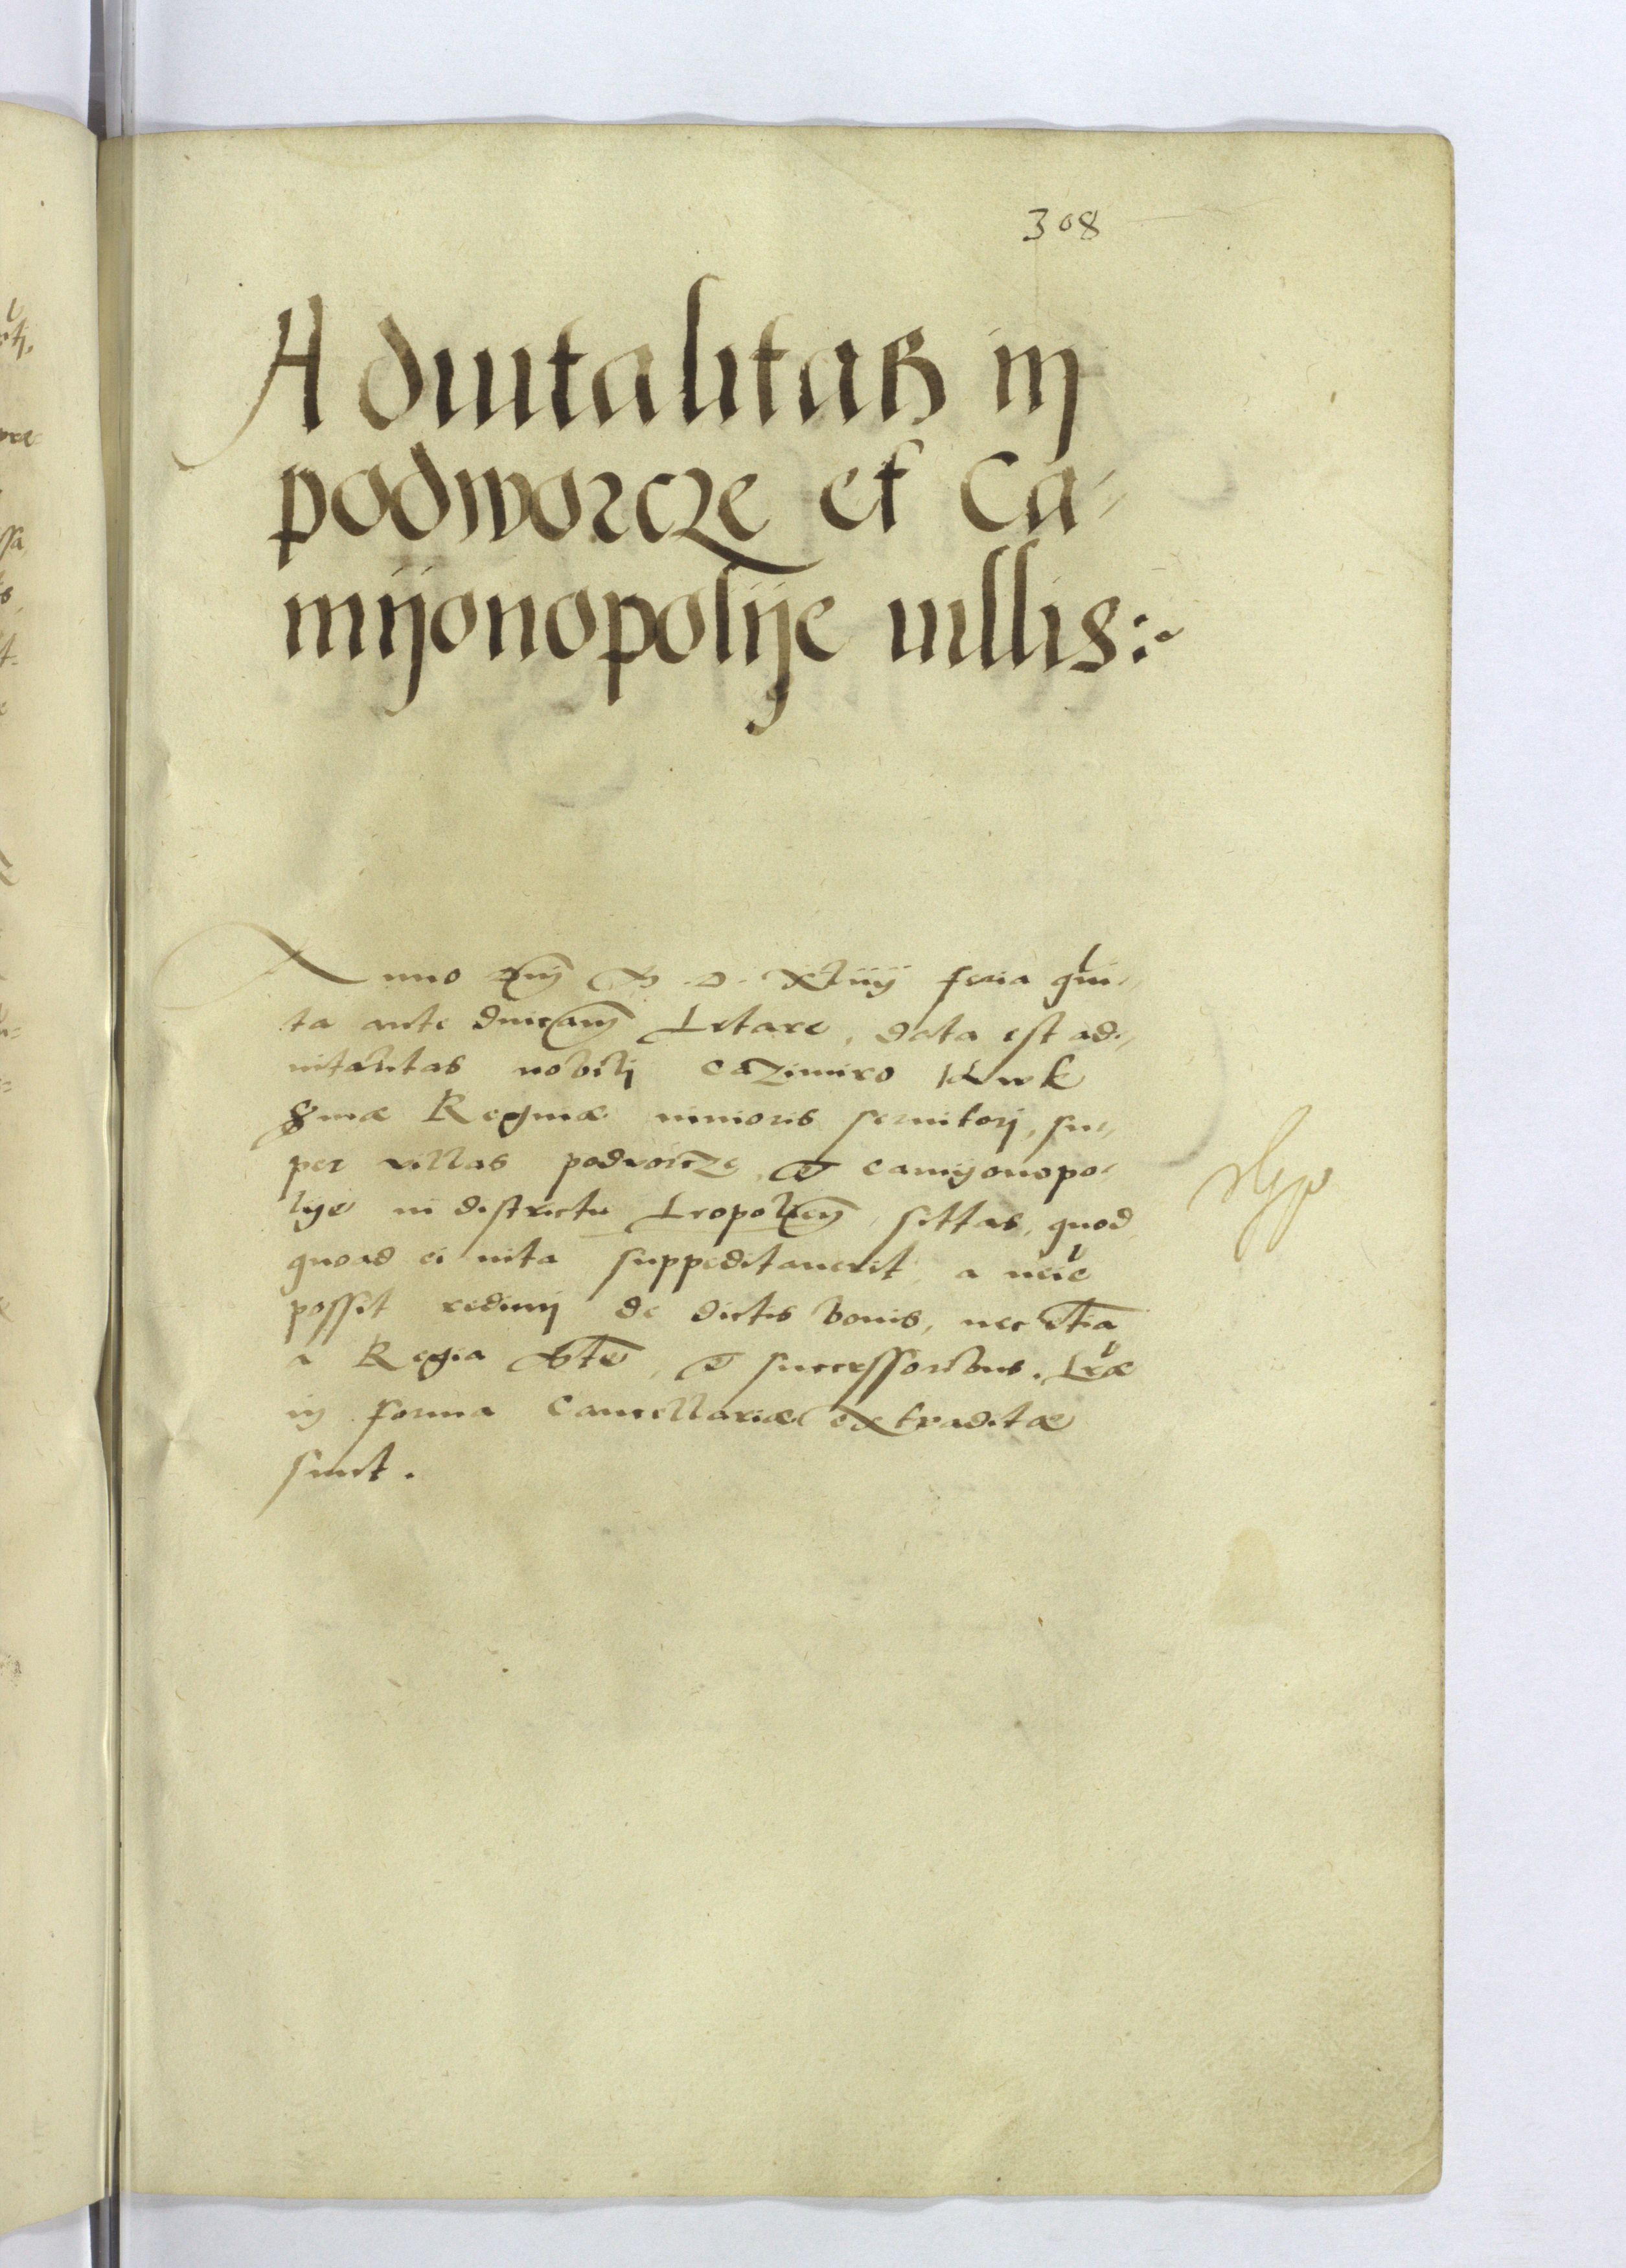 308
Aduitalitas in
podworcze et Ca-
mijonopolije uillis:~
Anno dnj M. D. XLiiij feria quin-
ta ante dnicam Letare, data est ad-
uitalitas nobilj Cazimiro
Reginæ iunioris seruitorj, su-
per villas podworcze, et camijonopo-
lije in districtu Leopolien, sittas, quod
quoad ei uita suppeditauerit, a neie
possit redimj de dictis bonis, nec etia
a Regia Mte, et successoribus. Lræ
in forma Cancellariæ extraditæ
sunt.